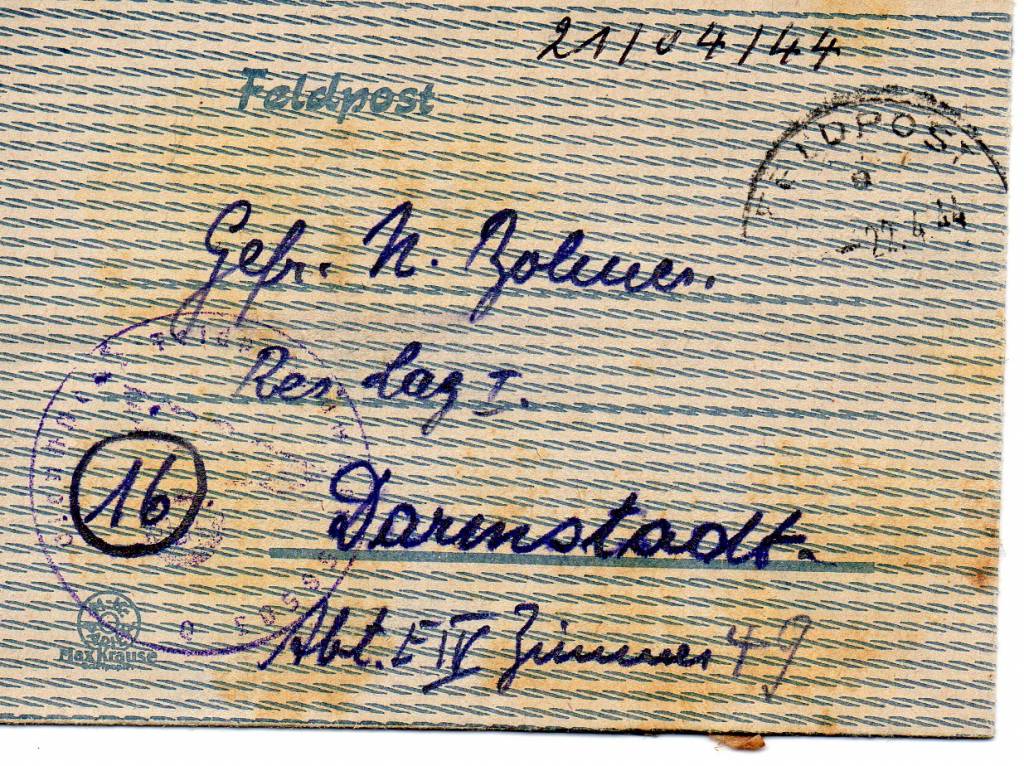 21/04/44
Feldpost
FELDPOST
a
-22.4.44
Gefr. N.
Res. Laz I.
16
Darmstadt.
Max Krause
Abt. E IV Zimmer 49